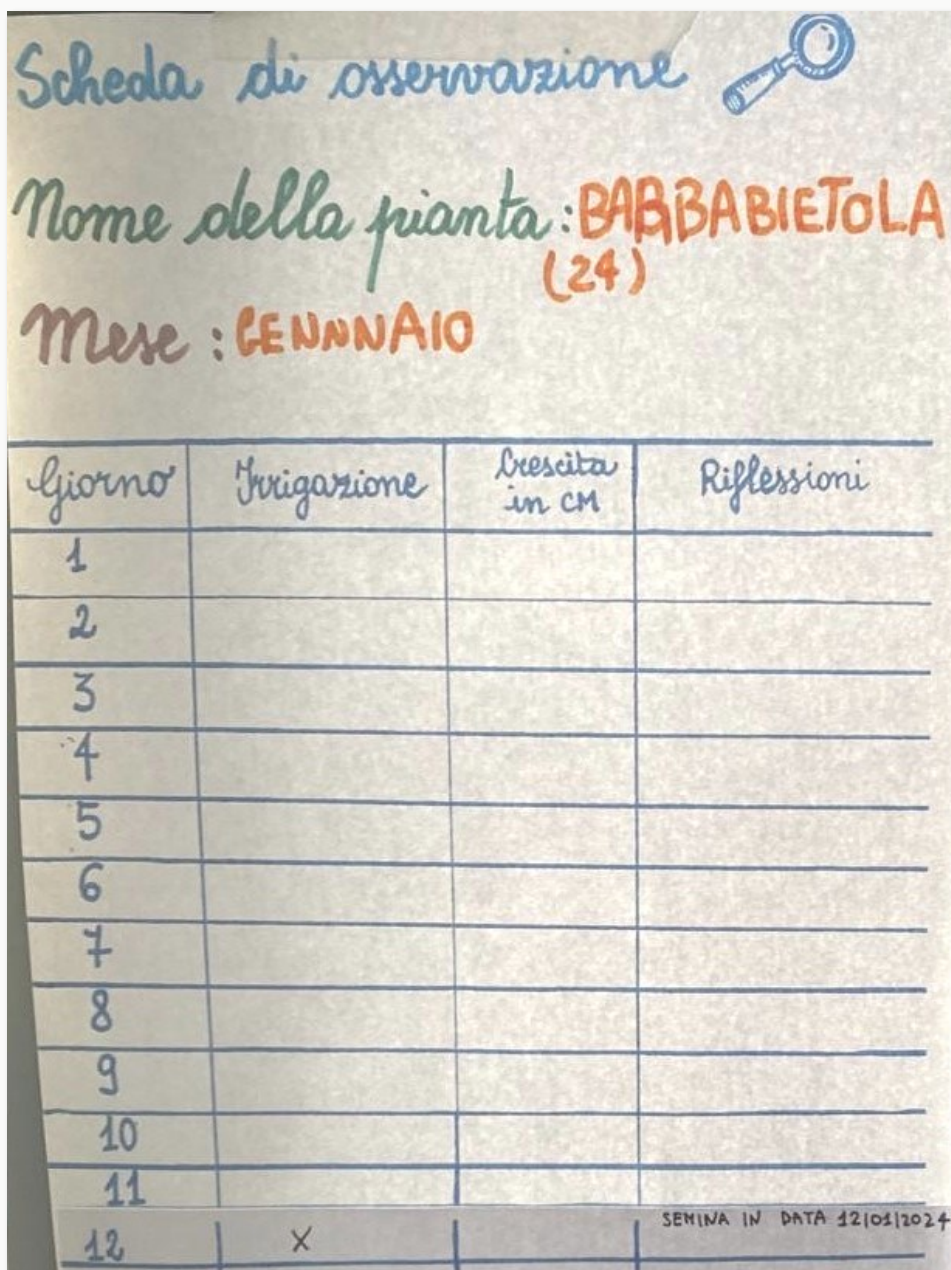 Scheda di osservazione
Nome della pianta: BARBABIETOLA
(24)
Mese: GENNNAIO
Giorno Irrigazione Crescita in CM Riflessioni
1
2
3
4
5
6
7
8
9
10
11
12 X SEMINA IN DATA 12|01|2024